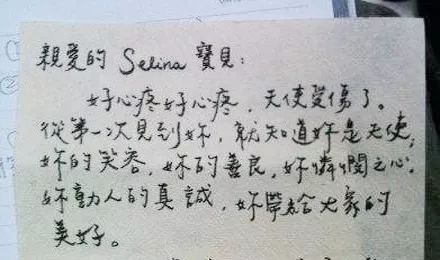 親愛的 Selina 寶貝：
好心疼好心疼，天使受傷了。
從第一次見到妳，就知道妳是天使，
妳的笑容，妳的善良，妳憐憫之心，
妳動人的真誠，妳帶給大家的
美好。